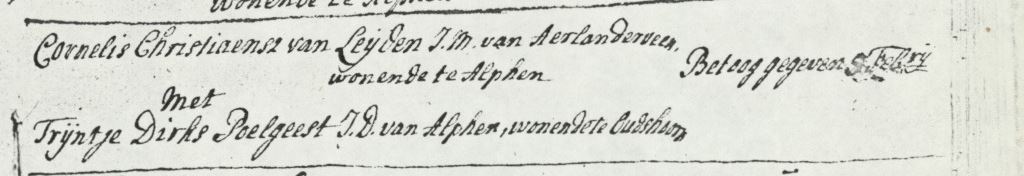 wonende te Alphen
Cornelis Christiaensz van Leijden J.M. van Aerlanderveen,
wonende te Alphen
Betoog gegeven Feb:rij
Met
Trijntje Dirks Poelgeest J.D. van Alphen, wonende te Oudshoorn